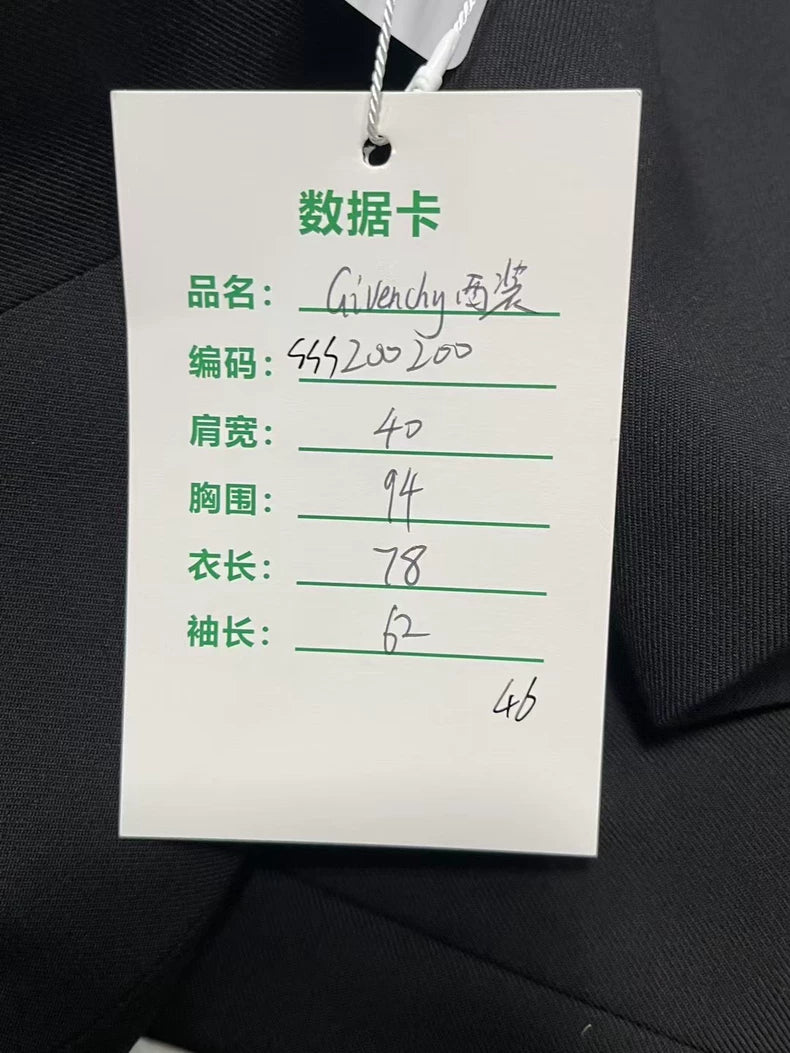 数据卡
品名：Givenchy西装
编码：SSS200200
肩宽：40
胸围：94
衣长：78
袖长：62
46